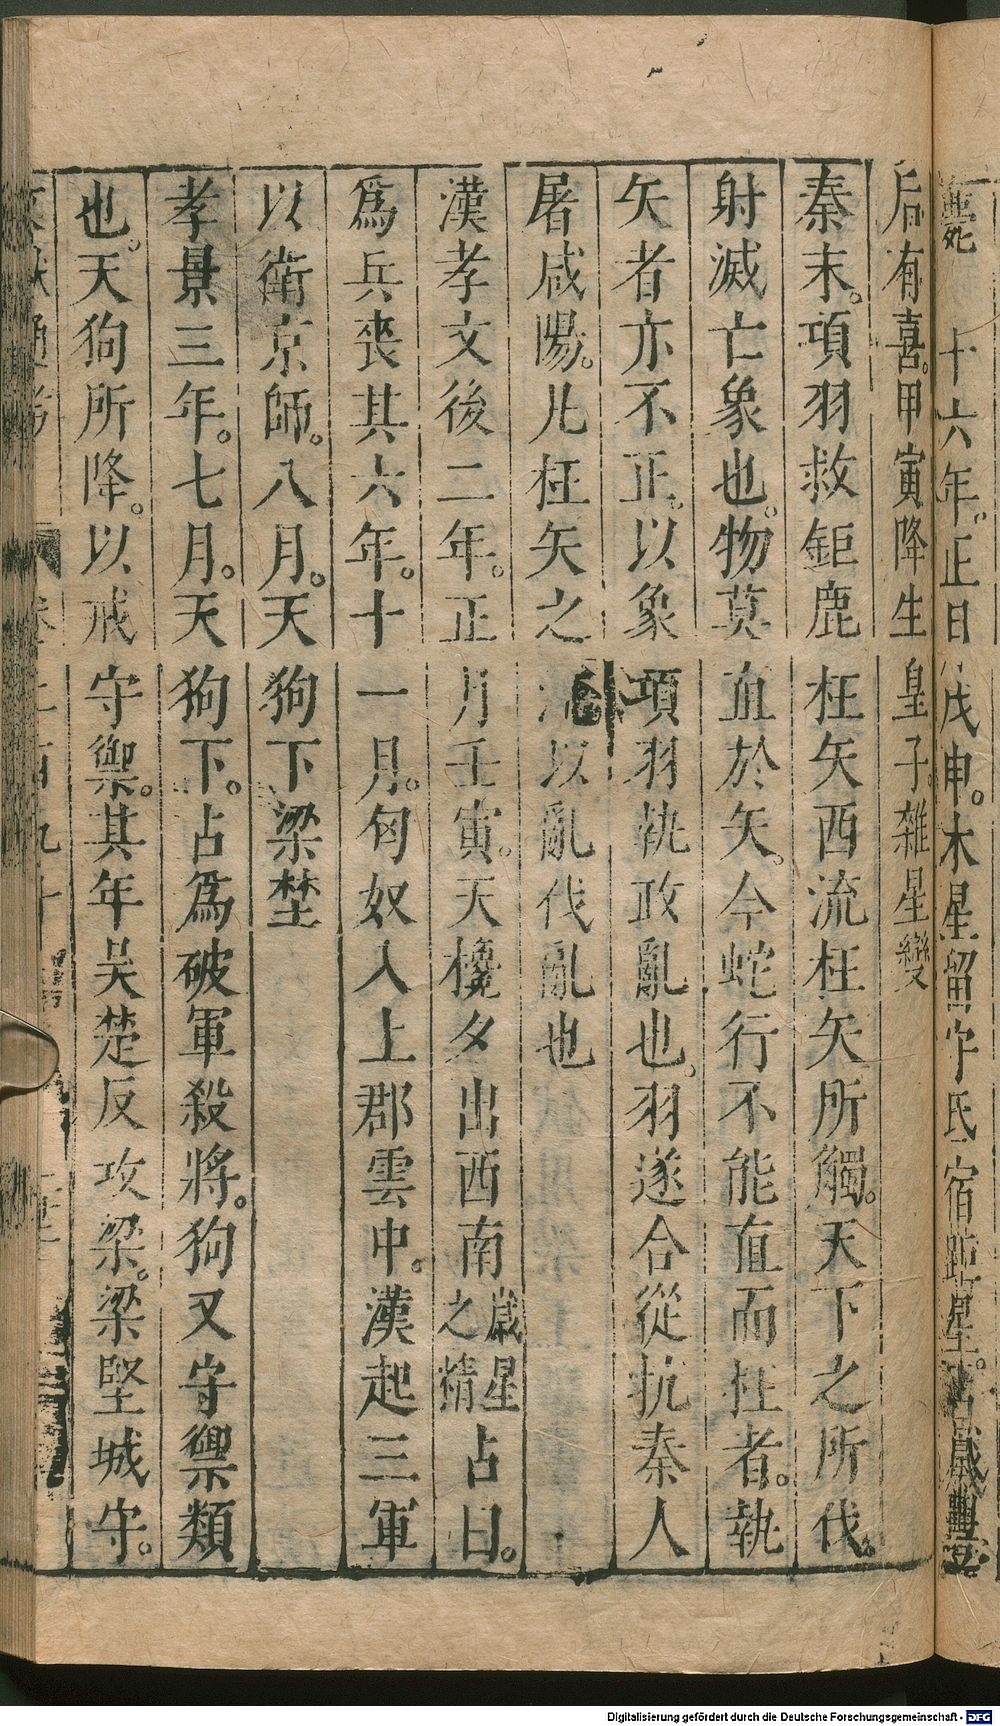 薨 十六年。正日戊申。木星留守氐宿距星。占歲豐
后有喜。甲寅降生皇子。雜星變
秦末。項羽救鉅鹿枉矢西流枉矢所觸。天下之所伐。
射滅亡象也。物莫直於矢。今蛇行不能直而枉者。執
矢者亦不正。以象項羽執政亂也。羽遂合從抗秦人
屠咸陽。凡枉矢之流以亂伐亂也
漢孝文後二年。正月壬寅。天欃夕出西南歲星之精占曰。
爲兵喪其六年。十一月。匈奴入上郡雲中。漢起三軍
以衛京師。八月。天狗下梁埜
孝景三年。七月。天狗下。占爲破軍殺將。狗又守禦類
也。天狗所降。以戒守禦。其年吳楚反攻梁。梁堅城守。
文獻通考 卷二百九十
Digitalisierung gefördert durch die Deutsche Forschungsgemeinschaft - DFG